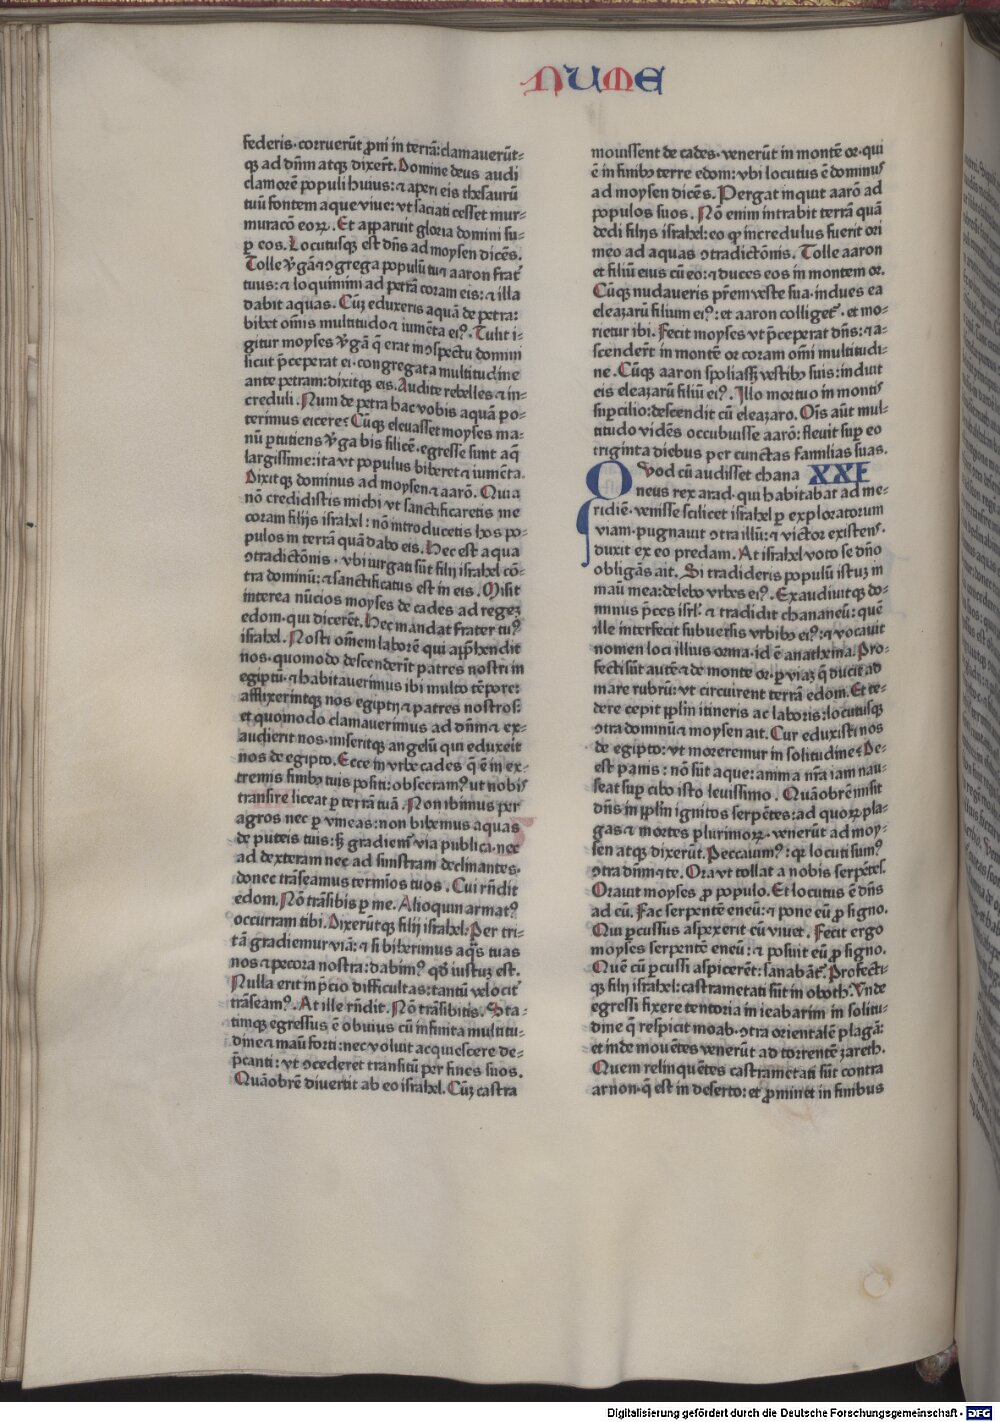 NUME
federis. corruerūt ꝓni in terrā: clamauerūt-
qꝫ ad dn̄m atqꝫ dixerт̄. Domine deus audi
clamorē populi huius: ⁊ aperi eis thesaurū
tuū fontem aque viue: vt saciati cesset mur-
muracō eoꝝ. Et apparuit gloria domini su-
ꝑ eos. Locutusqꝫ est dn̄s ad moysen dicēs.
Tolle v̓gā ⁊ ꝯgrega populū tu ⁊ aaron frat̓
tuus: ⁊ loquimini ad petrā coram eis: ⁊ illa
dabit aquas. Cūꝫ eduxeris aquā de petra:
bibet om̄is multitudo ⁊ iumēta eiꝰ. Tulit i-
gitur moyses v̓gā q̄ erat in ꝯspectu domini
sicut p̄ceperat ei. congregata multitudine
ante petram: dixitqꝫ eis. Audite rebelles ⁊ in-
creduli. Num de petra hac vobis aquā po-
terimus eicere? Cūqꝫ eleuasset moyses ma-
nū ꝑcutiens v̓ga bis silicē. egresse sunt aq̄
largissime: ita vt populus biberet ⁊ iumēta.
Dixitqꝫ dominus ad moysen ⁊ aarō. Quia
nō credidistis michi vt sanctificaretis me
coram filijs israhel: nō introducetis hos po-
pulos in terrā quā dabo eis. Hec est aqua
ꝯtradictōnis. vbi iurgati sūt filij israhel cō-
tra dominū: ⁊ sanctificatus est in eis. Misit
interea nūcios moyses de cades ad regeꝫ
edom. qui dicerēt. Hec mandat frater tuꝰ
israhel. Nosti om̄em laborē qui app̄hendit
nos. quomodo descenderīt patres nostri in
egiptū. ⁊ habitauerimus ibi multo tēpore:
afflixerintqꝫ nos egiptij ⁊ patres nostros:
et quomodo clamauerimus ad dn̄m ⁊ ex-
audierit nos. miseritqꝫ angelū qui eduxeit
nos de egipto. Ecce in vrbe cades q̄ ē in ex-
tremis finibꝫ tuis positi: obsecramꝰ ut nobis
transire liceat ꝑ terrā tuā. Non ibimus per
agros nec ꝑ vineas: non bibemus aquas
de puteis tuis: sꝫ gradiemᷣ via publica. nec
ad dexteram nec ad sinistram declinantes.
donec trāseamus termios tuos. Cui rn̄dit
edom. Nō trāsibis ꝑ me. Alioquin armatꝰ
occurram tibi. Dixerūtqꝫ filij israhel. Per tri-
tā gradiemur viā: ⁊ si biberimus aq̄s tuas
nos ⁊ pecora nostra: dabimꝰ qd̓ iustuꝫ est.
Nulla erit in p̄cio difficultas: tantū velocit̓
trāseamꝰ. At ille rn̄dit. Nō trāsibitis. Sta-
timqꝫ egressus ē obuius cū infinita multitu-
dine ⁊ manū forti: nec voluit acquiescere de-
p̄canti: vt ꝯcederet transitū per fines suos.
Quāobrē diuertit ab eo israhel. Cūꝫ castra
mouissent de cades. venerūt in montē or. qui
ē in finibꝫ terre edom: vbi locutus ē dominus
ad moysen dicēs. Pergat inquit aarō ad
populos suos. Nō enim intrabit terrā quā
dedi filijs israhel: eo qꝙ incredulus fuerit ori
meo ad aquas ꝯtradictōnis. Tolle aaron
et filiū eius cū eo: ⁊ duces eos in montem or.
Cūqꝫ nudaueris pr̄em veste sua. indues ea
eleazarū filium eiꝰ: et aaron colligetᷣ. et mo-
rietur ibi. Fecit moyses vt p̄ceperat dn̄s: ⁊ a-
scenderт̄ in montē or coram om̄i multitudi-
ne. Cūqꝫ aaron spoliassꝫ vestibꝫ suis: induit
eis eleazarū filiū eiꝰ. Illo mortuo in montis
suꝑcilio: descendit cū eleazaro. Oīs aūt mul-
titudo vidēs occubuisse aarō: fleuit suꝑ eo
triginta diebus per cunctas familias suas.
Quod cū audisset chana XXI
neus rex arad. qui habitabat ad me-
ridiē. venisse scilicet israhel ꝑ exploratorum
viam. pugnauit ꝯtra illū: ⁊ victor existens.
duxit ex eo predam. At israhel voto se dn̄o
obligās ait. Si tradideris populū istuꝫ in
manū mea: delebo vrbes eiꝰ. Exaudiuitqꝫ do-
minus p̄ces isrl̓. ⁊ tradidit chananeū: quē
ille interfecit subuersis vrbibꝫ eiꝰ: ⁊ vocauit
nomen loci illius orma. id ē anathema. Pro-
fecti sūt autē ⁊ de monte or. ꝑ viaꝫ q̄ ducit ad
mare rubrū: vt circuirent terrā edom. Et te-
dere cepit ppl̄m itineris ac laboris: locutusqꝫ
ꝯtra dominū ⁊ moysen ait. Cur eduxisti nos
de egipto: vt moreremur in solitudine? De-
est panis: nō sūt aque: anima nr̄a iam nau-
seat suꝑ cibo isto leuissimo. Quāobrē misit
dn̄s in ppl̄m ignitos serpētes: ad quoꝝ pla-
gas ⁊ mortes plurimoꝝ. venerūt ad moy-
sen atqꝫ dixerūt. Peccauimꝰ: qꝛ locuti sumꝰ
ꝯtra dn̄m ⁊ te. Ora vt tollat a nobis serpētes.
Orauit moyses ꝓ populo. Et locutus ē dn̄s
ad cū. Fac serpentē eneū: ⁊ pone eū ꝓ signo.
Qui ꝑcussus aspexerit cū viuet. Fecit ergo
moyses serpentē eneū: ⁊ posuit eū ꝓ signo.
Quē cū ꝑcussi aspicerēt: sanabātᷣ. Profecti-
qꝫ filij israhel: castrametati sūt in oboth. Vnde
egressi fixere tentoria in ieabarim in solitu-
dine q̄ respicit moab. ꝯtra orientalē plagā:
et inde mouētes venerūt ad torrentē zareth.
Quem relinquētes castrametati sūt contra
arnon. q̄ est in deserto: et ꝓminet in finibus
Digitalisierung gefördert durch die Deutsche Forschungsgemeinschaft - DFG